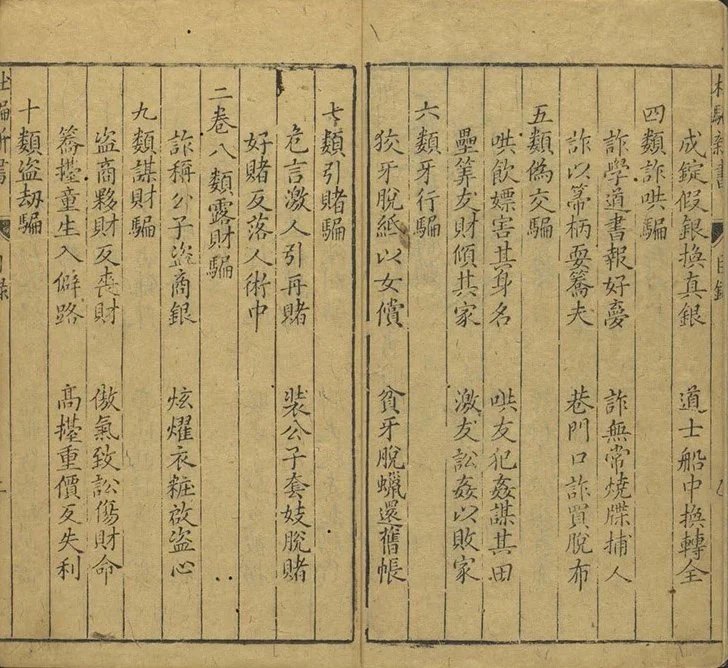 成錠假銀換真銀　道士船中換轉全
四類詐哄騙
詐學道書報好夢　詐無常燒牒捕人
詐以箒柄耍簥夫　巷門口詐買脫布
五類偽交騙
哄飲嫖害其身名　哄友犯姦謀其田
壘筭友財傾其家　激友訟姦以敗家
六類牙行騙
狡牙脫紙以女償　貧牙脫蠟還舊帳
七類引賭騙
危言激人引再賭　裝公子套妓脫賭
好賭反落人術中
二卷八類露財騙
詐稱公子盜商銀　炫耀衣粧啟盜心
九類謀財騙
盜商夥財反喪財　傲氣致訟傷財命
簥擡童生入僻路　高擡重價反失利
十類盜劫騙